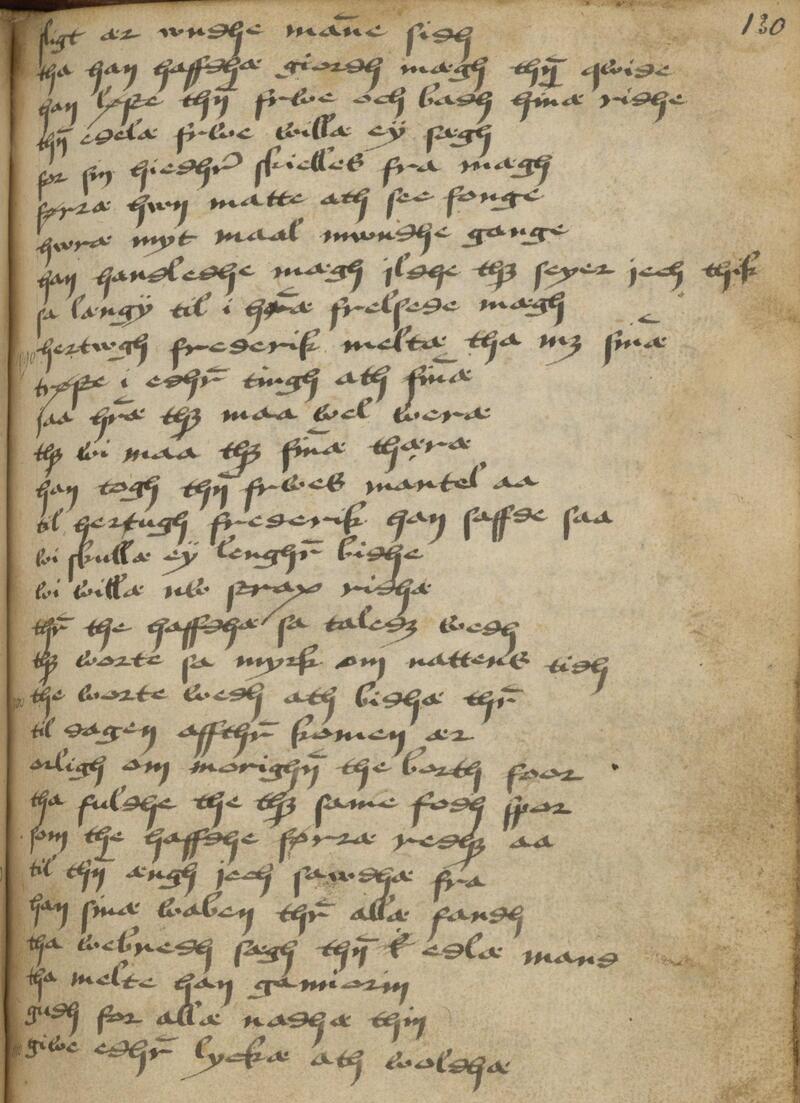 130
sligt ær wndhe mãne sidh
tha han haffdhæ giordh mægh thn̄ qwide
han løste thn̄ frwe och badh hinæ ridhe
thn̄ edelæ frwe willæ eÿ sægh
for sin hiedhr̄ skielles fra mægh
førræ hwn matte ath see fonge
hwræ myt maal mwndhe gange
han handledhe mægh ildhe thz seyer jech thik
sa længÿ til i hr̄æ frelsede mægh
hertwgh frederik meltæ tha mz sin̄æ
trøste i edhr̄ tingh ath fin̄æ
saa hr̄æ thz maa wel weræ
thz wi maa thz fin̄æ thæræ
han togh thn̄ frwes mantel aa
til hertugh frederik han saffde saa
wi skullæ eÿ lenghr̄ bidhe
wi willæ nw strax ridhæ
thr̄ the haffdhæ sa taledz wedh
thz worte sa myrk om nattens tidh
the worte wedh ath bidhæ thr̄
til dagen affthr̄ komen ær
orligh om morighn̄ the borth foor
tha fuldhe the thz same fodh spor
som the haffdhe førræ redhz aa
til thn̄ ængh jech sawdhæ fra
han sinæ waben thr̄ allæ fandh
tha webnedh sægh thn̄ edlæ mand
tha melte han gamiorin
gudh for allæ nadhæ thin
giwe edhr̄ lyckæ ath woldhæ